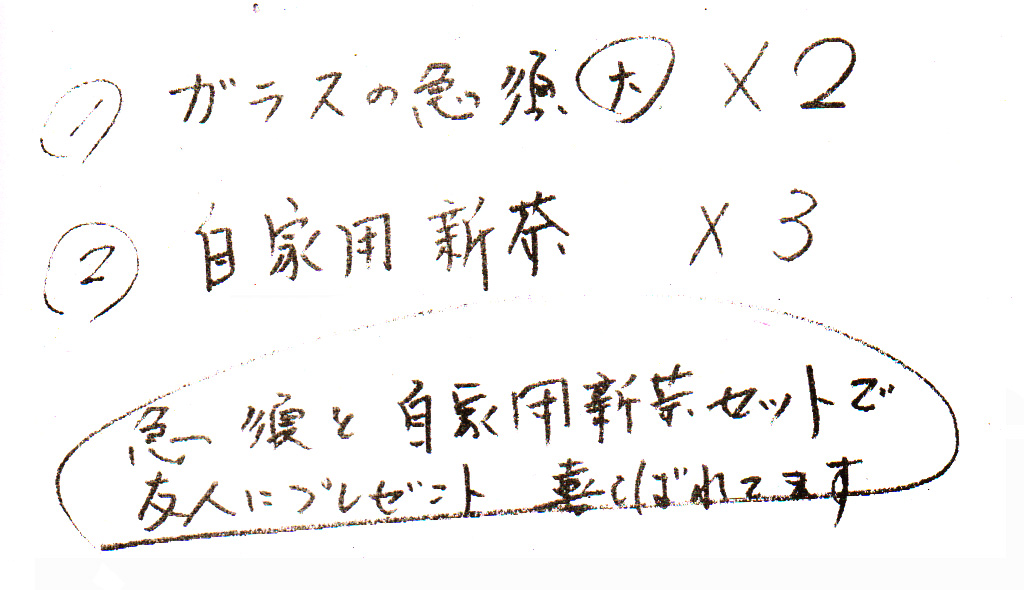 ① ガラスの急須 大 × 2
② 自家用新茶 × 3
急須と自家用新茶セットで
友人にプレゼント 喜こばれてます